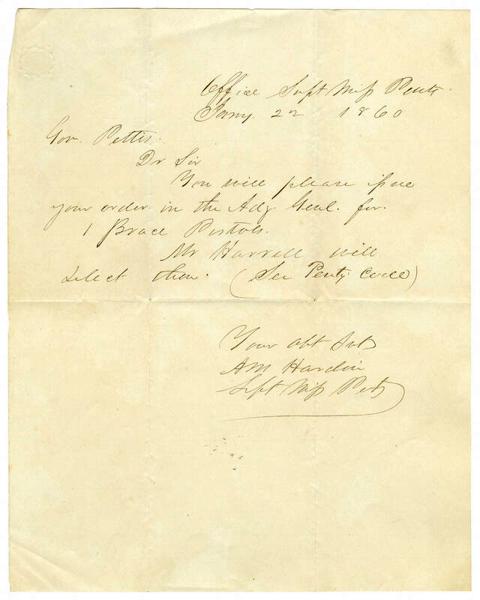 Office Supt Miss Penty.
Jany. 22 1860
Gov. Pettis.
Dr Sir
You will please issue
your order in the Adj Genl. for.
1 Brace Pistols.
Mr Harrell will
select them. (See Penty Code)
Your Obt Svt
AM Hardin
Supt Miss Pety